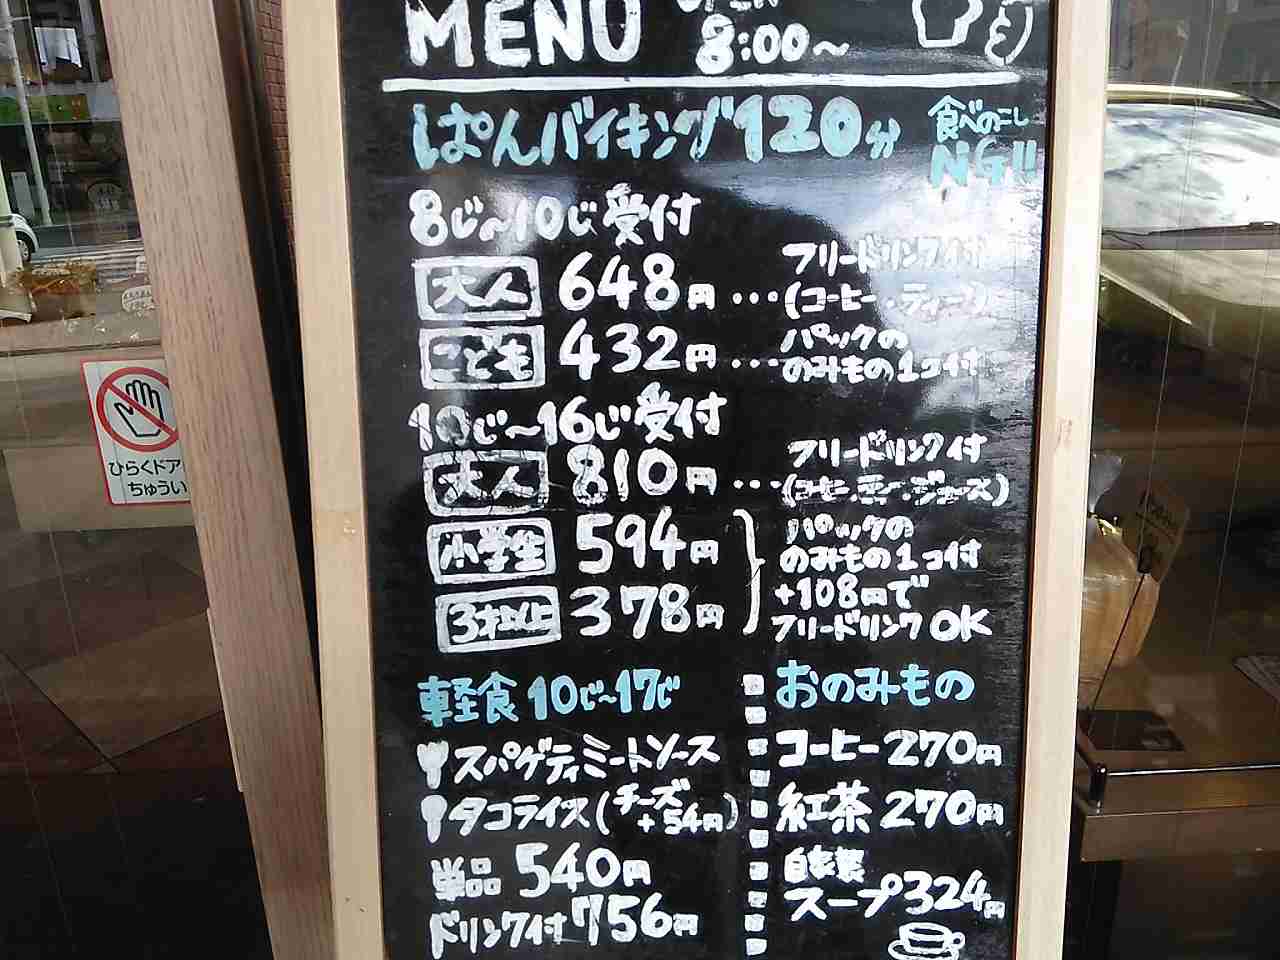 MENU
OPEN
8:00～
ぱんバイキング120分
食べのこし
NG!!
8じ～10じ受付
大人 648円…
フリードリンク付
(コーヒー・ティーソ)
こども 432円…
パックの
のみもの1コ付
10じ～16じ受付
大人 810円…
フリードリンク付
(コーヒー・ティー・ジュース)
小学生 594円
3才以上 378円
パックの
のみもの1コ付
+108円で
フリードリンクOK
軽食10じ～17じ
スパゲティミートソース
タコライス(チーズ+54円)
単品540円
ドリンク付756円
おのみもの
コーヒー270円
紅茶270円
自家製
スープ324円
ひらくドア
ちゅうい